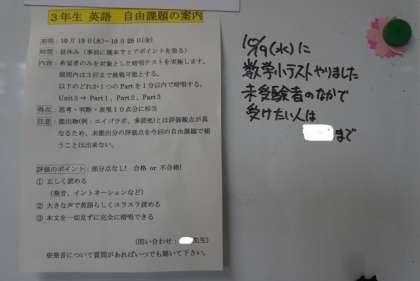 3年生 英語 自由課題の案内
期間:10月19日(水)~10月28日(金)
時間:昼休み(事前に橋本までアポイントを取る)
内容:希望者のみを対象とした暗唱テストを実施します。
期間内は3回まで挑戦可能とする。
以下のどれか1つのPartを1分以内で暗唱する。
Unit5 → Part1、Part2、Part3
得点:思考・判断・表現10点分に相当
注意:提出物(例:エイゴラボ、多読他)とは評価観点が異
なるため、未提出分の評価点を今回の自由課題で補
うことは出来ない。
評価のポイント:部分点なし! 合格 or 不合格!
① 正しく読める
(発音、イントネーションなど)
② 大きな声で英語らしくスラスラ読める
③ 本文を一切見ずに完全に暗唱できる
(問い合わせ: 先生)
※発音について質問があればいつでも聞いて下さい。
10/19(水)に
数学小テストやりました
未受験者のなかで
受けたい人は
まで